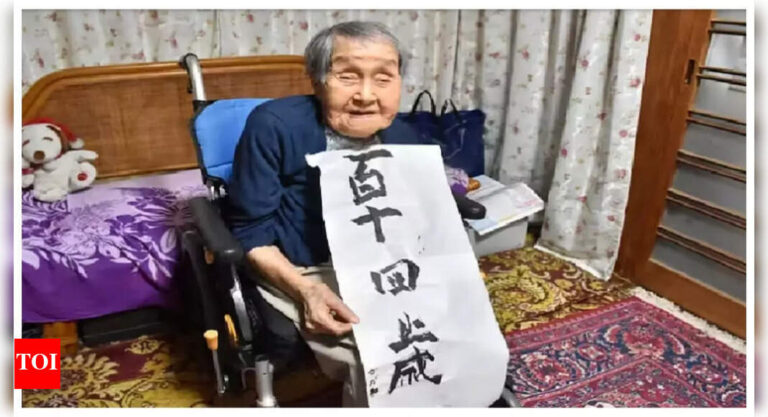 百十四歳
TOI